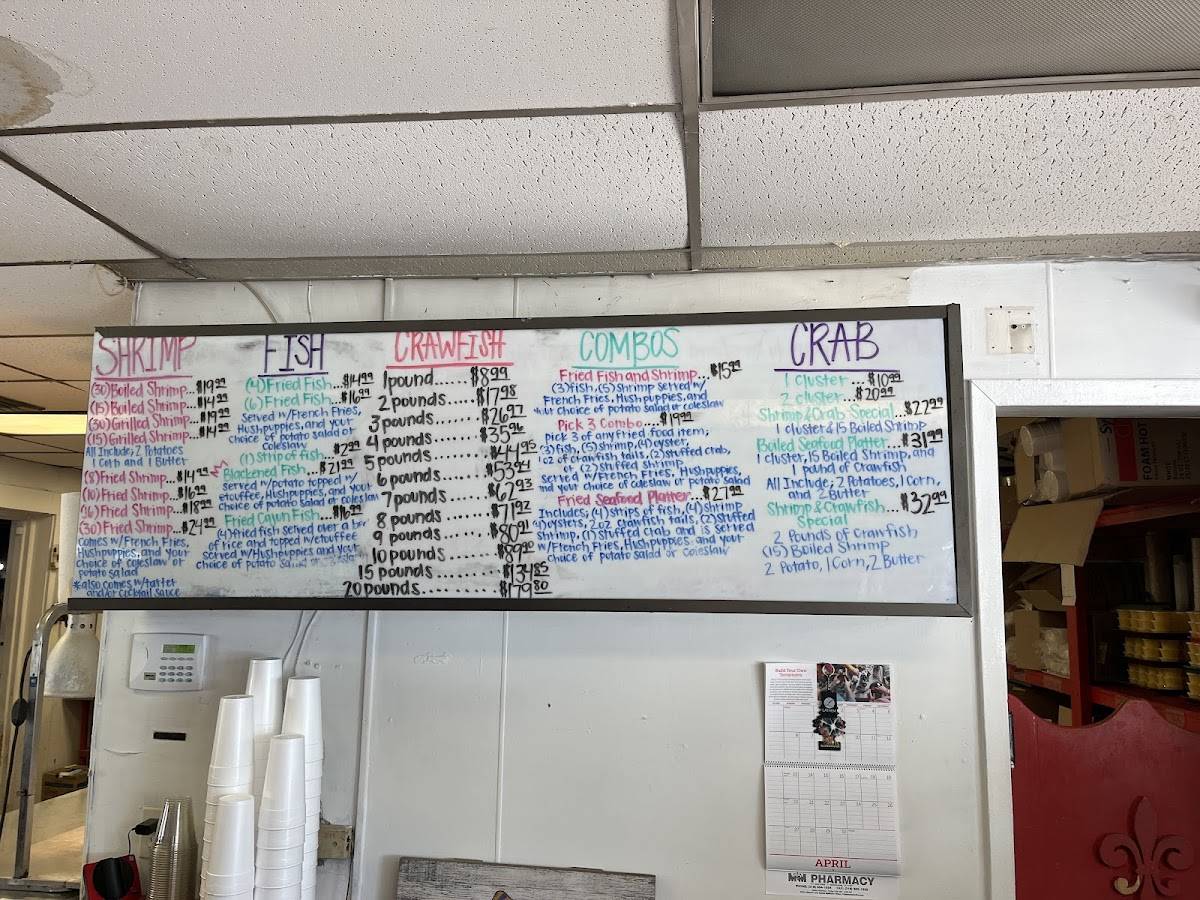 SHRIMP
(30) Boiled Shrimp...$19.99
(15) Boiled Shrimp...$14.99
(30) Grilled Shrimp...$19.99
(15) Grilled Shrimp...$14.99
All Include; 2 Potatoes
1 Corn and 1 Butter
(8) Fried Shrimp...$14.99
(10) Fried Shrimp...$16.99
(16) Fried Shrimp...$18.99
(30) Fried Shrimp...$24.99
Comes w/French Fries,
Hushpuppies, and your
choice of coleslaw or
potato salad
*also comes w/tarter
and/or cocktail sauce
FISH
(4) Fried Fish...$14.99
(6) Fried Fish...$16.99
Served w/French Fries,
Hushpuppies, and your
choice of potato salad or
coleslaw
(1) Strip of fish...$2.99
Blackened Fish...$21.99
served w/potato topped w/
etouffee, Hushpuppies, and your
choice of potato salad or coleslaw
Fried Cajun Fish...$16.99
(4) fried fish served over a bed
of rice and topped w/etouffee
served w/Hushpuppies and your
choice of potato salad or coleslaw
CRAWFISH
1 pound......$8.99
2 pounds......$17.98
3 pounds......$26.97
4 pounds......$35.96
5 pounds......$44.95
6 pounds......$53.94
7 pounds......$62.93
8 pounds......$71.92
9 pounds......$80.91
10 pounds......$89.90
15 pounds.........$134.85
20 pounds.........$179.80
COMBOS
Fried Fish and Shrimp...$15.99
(3) fish, (5) shrimp served w/
French Fries, Hushpuppies, and
your choice of potato salad or coleslaw
Pick 3 Combo...$19.99
Pick 3 of any fried food item;
(3) fish, (5) shrimp, (4) oyster,
oz of crawfish tails, (2) stuffed crab,
or (2) stuffed shrimp.
served w/French Fries, Hushpuppies,
and your choice of potato salad or coleslaw
Fried Seafood Platter...$27.99
Includes; (4) strips of fish, (4) shrimp
(4) oysters, 2 oz crawfish tails, (2) stuffed
shrimp, (1) stuffed crab and is served
w/French Fries, Hushpuppies, and your
choice of potato salad or coleslaw
CRAB
1 cluster...$10.99
2 cluster...$20.99
Shrimp & Crab Special...$22.99
1 cluster & 15 Boiled Shrimp
Boiled Seafood Platter...$31.99
1 Cluster, 15 Boiled Shrimp, and
1 pound of Crawfish
All Include; 2 Potatoes, 1 Corn,
and 2 Butter
Shrimp & Crawfish...$32.99
Special
2 Pounds of Crawfish
(15) Boiled Shrimp
2 Potato, 1 Corn, 2 Butter
FOAM HOT
APRIL
M&M PHARMACY